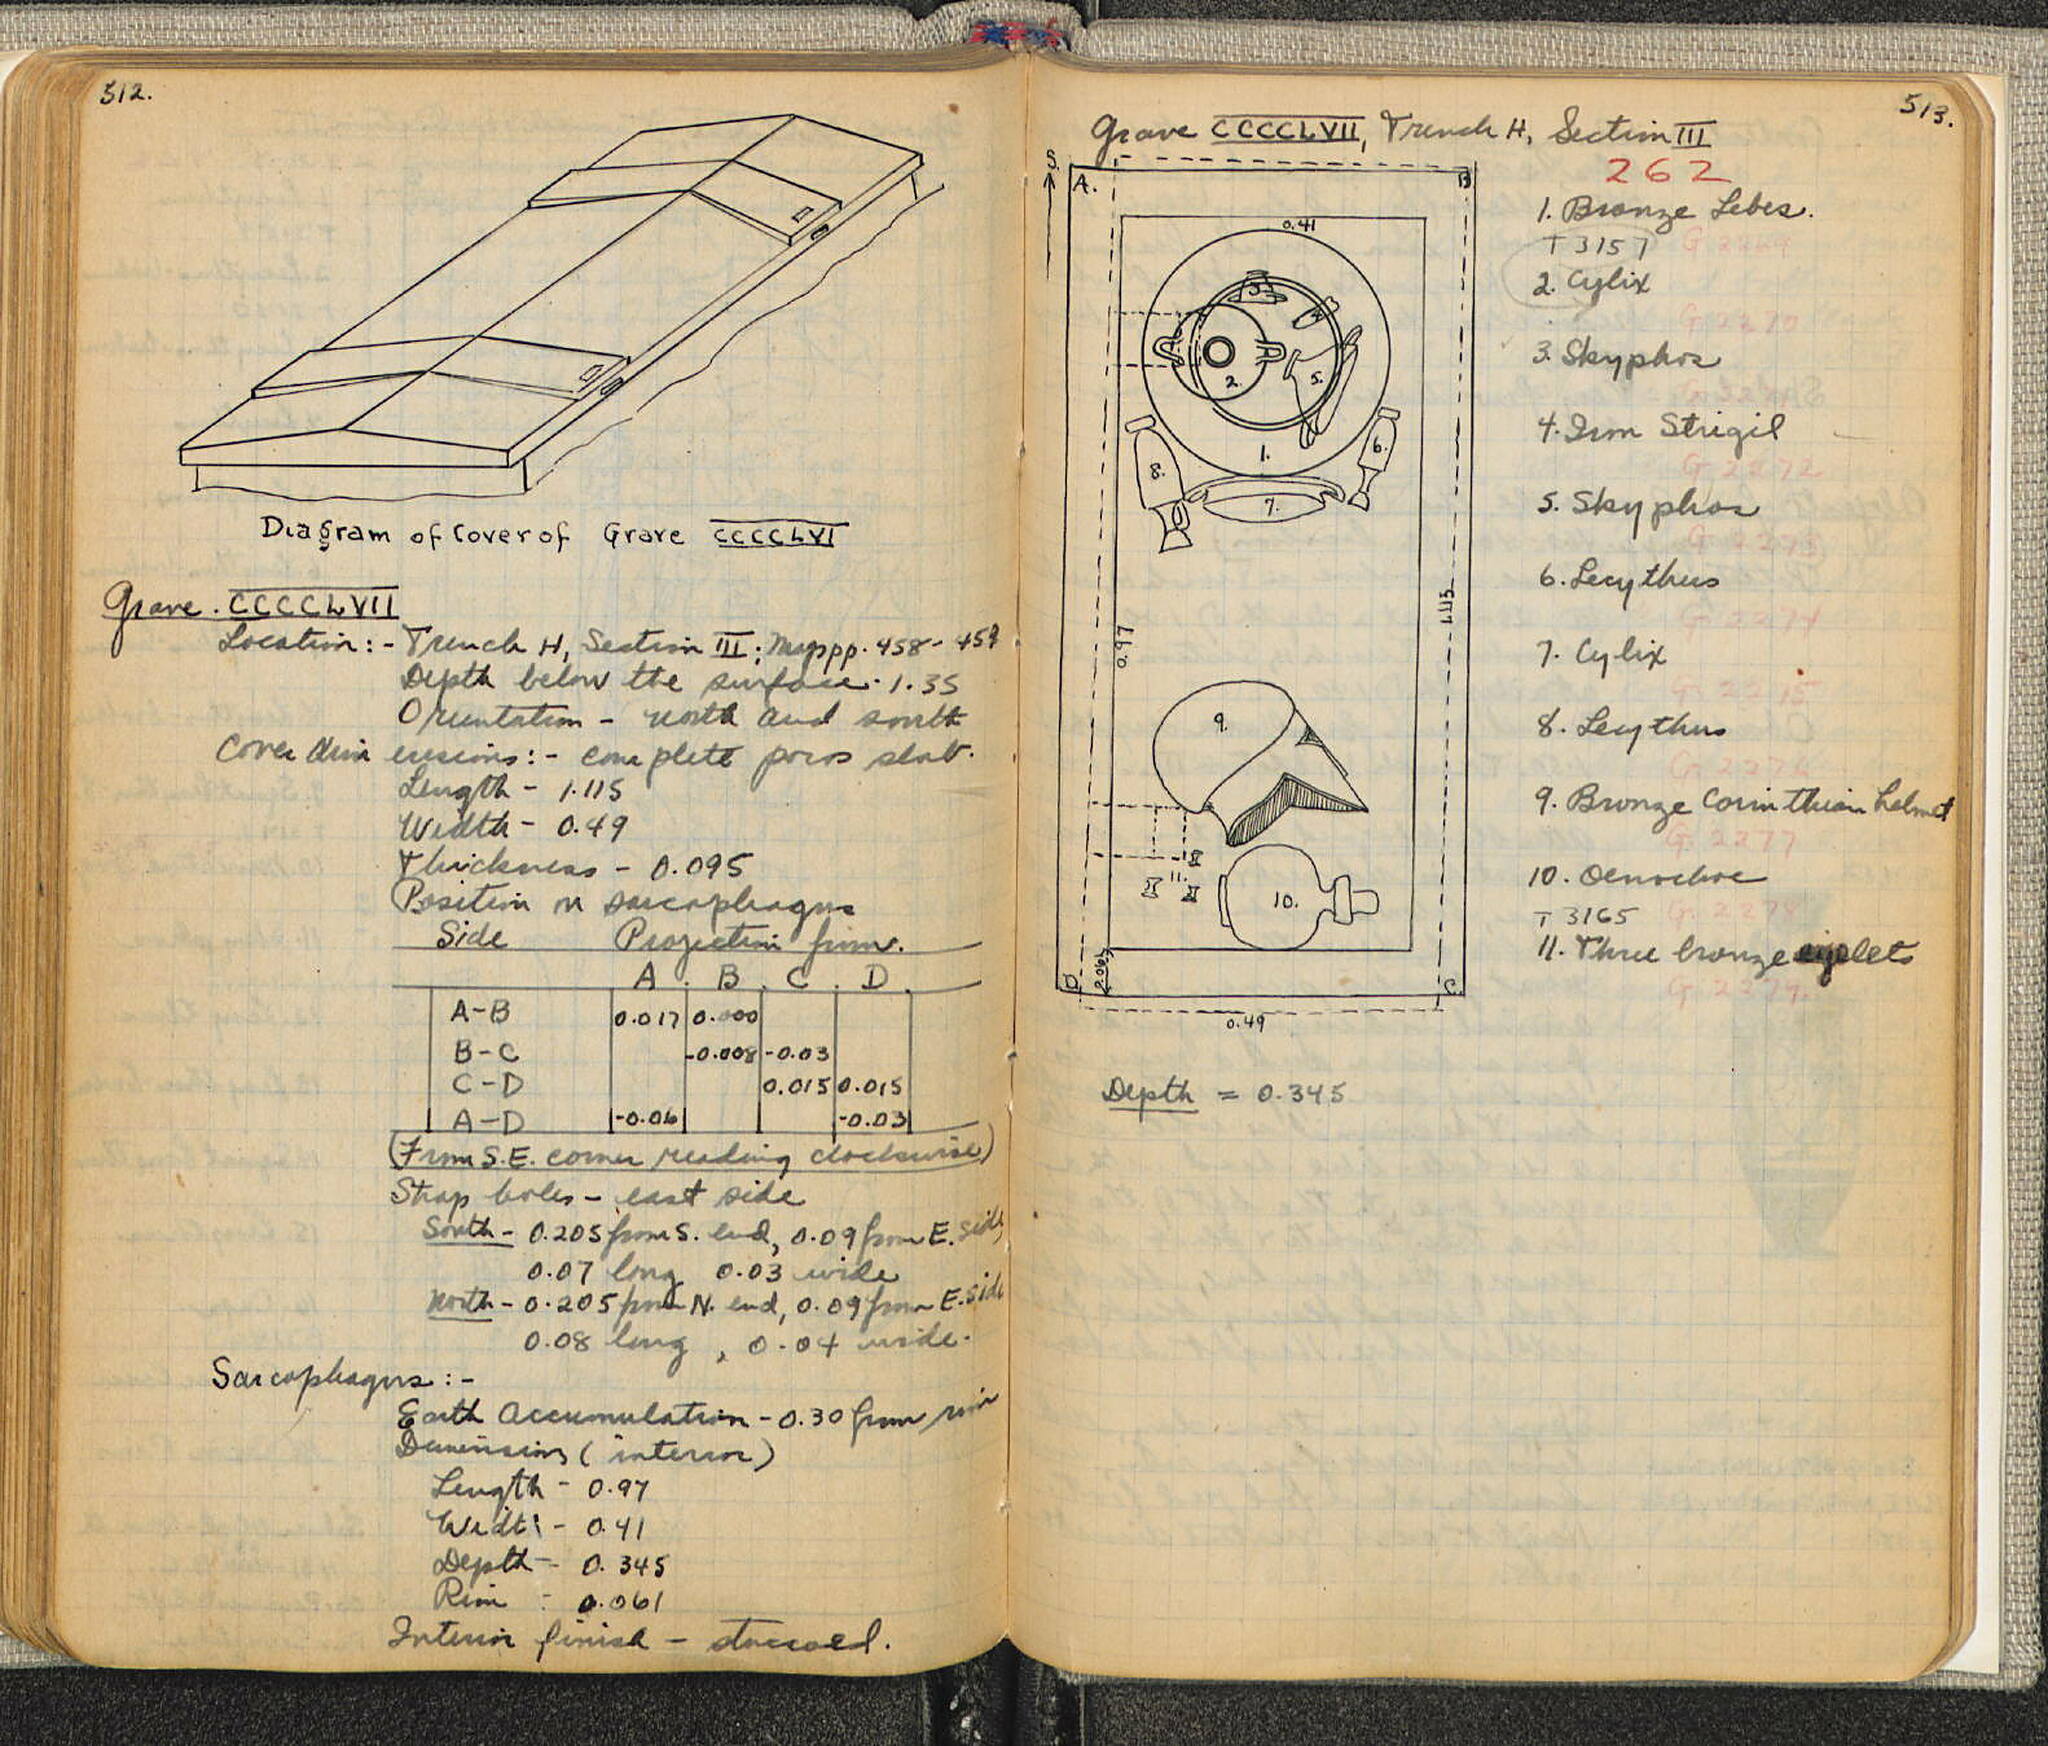 512.
Diagram of Cover of Grave CCCCLVI
Grave. CCCCLVII
Location:- Trench H, Section III; Map pp. 458-459
Depth below the surface. 1.35
Orientation - north and south
Cover dimensions:- complete poros slab.
Length - 1.115
Width - 0.49
Thickness - 0.095
Position on sarcophagus
Side Projection from.
A. B. C. D.
A-B 0.017 0.000
B-C -0.008 -0.03
C-D 0.015 0.015
A-D -0.06 -0.03
(From S.E. corner reading clockwise)
Strap holes - east side
South - 0.205 from S. end, 0.09 from E. side
0.07 long 0.03 wide
North - 0.205 from N. end, 0.09 from E. side
0.08 long, 0.04 wide.
Sarcophagus:-
Earth Accumulation - 0.30 from rim
Dimensions (interior)
Length - 0.97
Width - 0.41
Depth - 0.345
Rim - 0.061
Interior finish - stuccoed.
513.
Grave CCCCLVII, Trench H, Section III
262
S.
A.
B
0.41
3.
4
2.
5.
1.
6.
8.
7.
0.97
1.115
9.
11.
10.
0.061
D
C.
0.49
1. Bronze Lebes.
T 3157 G 2269
2. Cylix
G 2270
3. Skyphos
G 2271
4. Iron Strigil
G 2272
5. Skyphos
G 2273
6. Lecythus
G 2274
7. Cylix
G 2275
8. Lecythus
G 2276
9. Bronze Corinthian helmet
G 2277
10. Oenochoe
T 3165 G 2278
11. Three bronze eyelets
G 2279.
Depth = 0.345